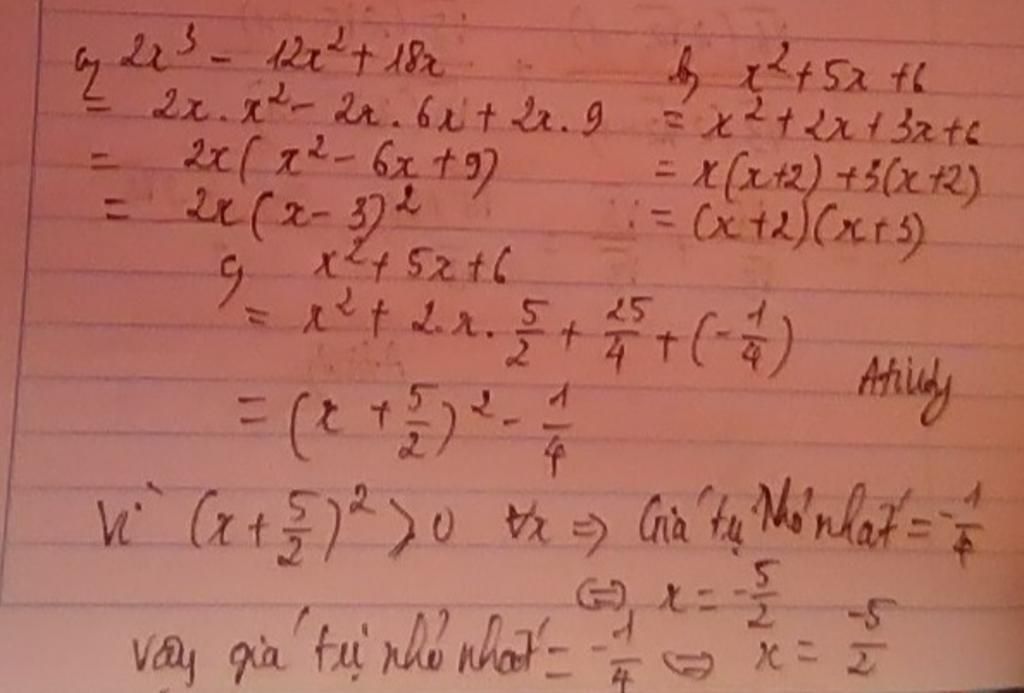 a, 2x³ - 12x² + 18x
= 2x . x² - 2x . 6x + 2x . 9
= 2x(x² - 6x + 9)
= 2x(x - 3)²
b, x² + 5x + 6
= x² + 2x + 3x + 6
= x(x+2) + 3(x+2)
= (x+2)(x+3)
c, x² + 5x + 6
= x² + 2.x. 5/2 + 25/4 + (-1/4)
= (x + 5/2)² - 1/4
Vì (x + 5/2)² ⩾ 0 ∀x ⇒ Giá trị nhỏ nhất = -1/4
⇔ x = -5/2
Vậy giá trị nhỏ nhất = -1/4 ⇔ x = -5/2